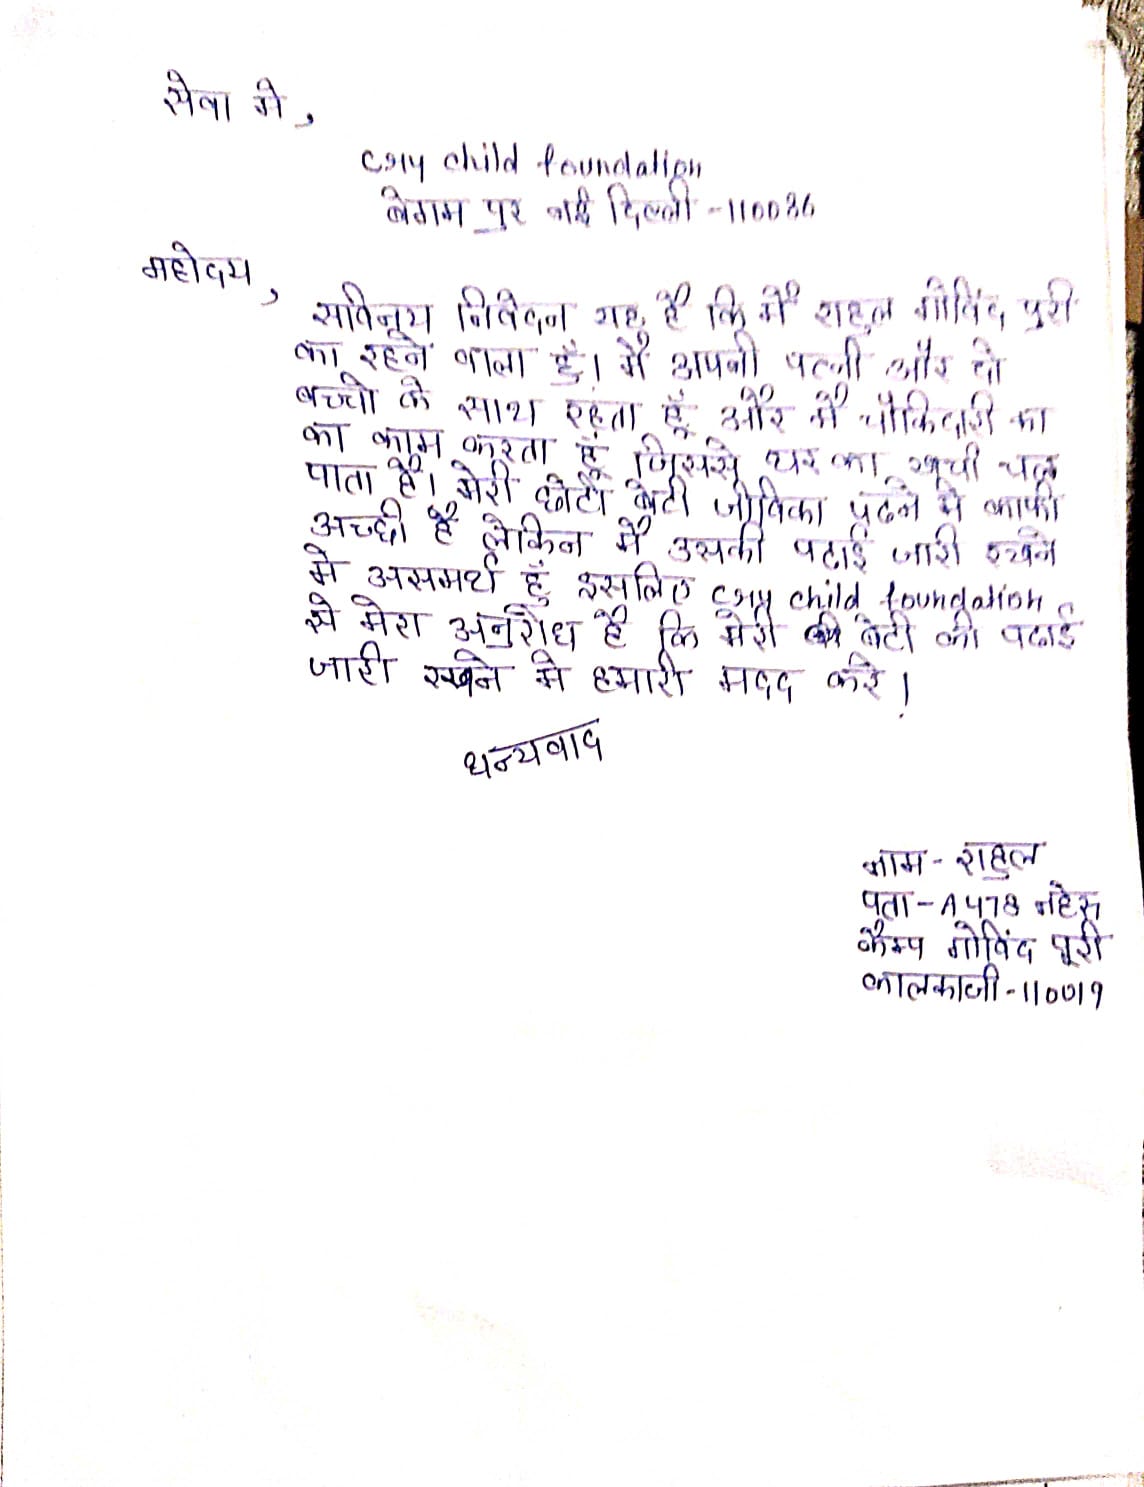 सेवा मे,
cry child foundation
बेगम पुर नई दिल्ली -110086
महोदय,
सविनय निवेदन यह है कि मैं राहुल गोविंद पुरी
का रहने वाला हूँ। मैं अपनी पत्नी और दो
बच्चो के साथ रहता हूँ और मैं चौकिदारी का
का काम करता हूँ जिससे घर का खर्चा चल
पाता है। मेरी छोटी बेटी जीविका पढने मे काफी
अच्छी है लेकिन मैं उसकी पढाई जारी रखने
मे असमर्थ हुँ इसलिए cry child foundation
से मेरा अनुरोध है कि मेरी बेटी की पढाई
जारी रखने मे हमारी मदद करे।
धन्यवाद
नाम - राहुल
पता - A 478 नहेरू
कैम्प गोविंद पूरी
कालकाजी - 110019